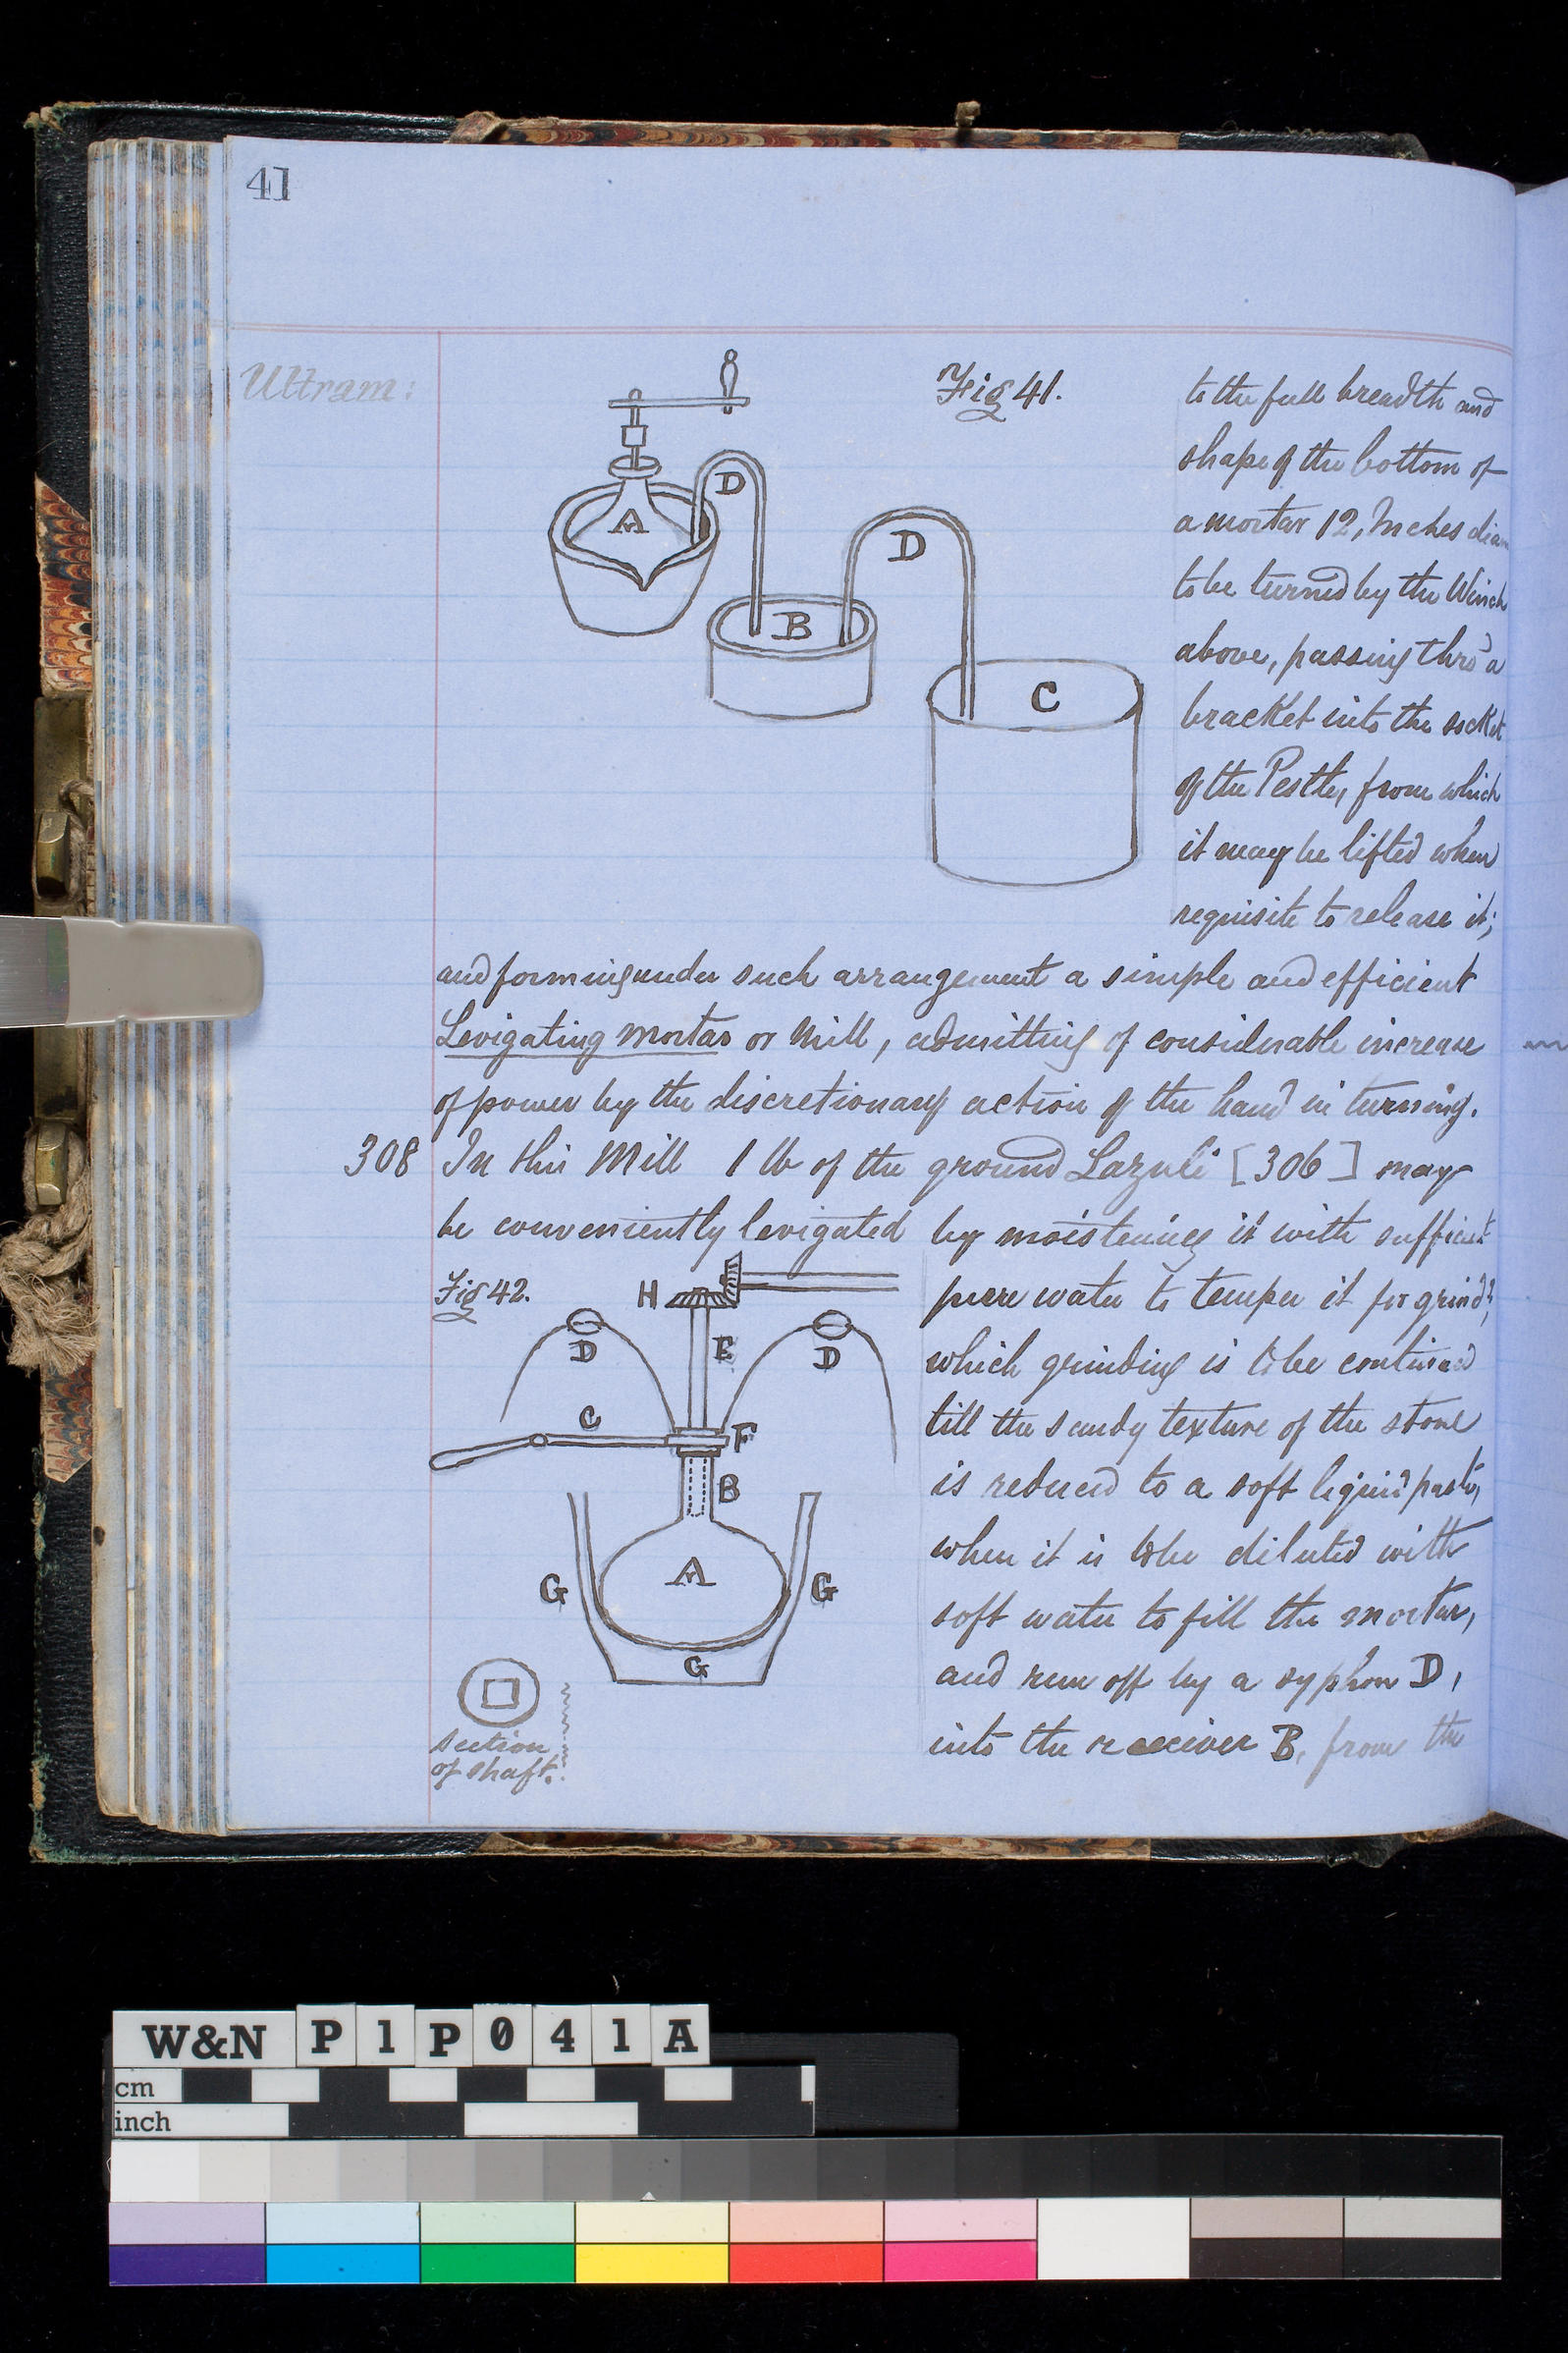 41
Ultram:
Fig 41.
A
D
B
D
C
to the full breadth and
shape of the bottom of
a mortar 12, Inches diam
to be turned by the Winch
above, passing thro' a
bracket into the socket
of the Pestle, from which
it may be lifted when
requisite to release it;
and forming under such arrangement a simple and efficient
Levigating mortar or Mill, admitting of considerable increase
of power by the discretionary action of the hand in turning.
308 In this Mill 1 lb of the ground Lazuli [306] may
be conveniently levigated by moistening it with sufficient
Fig 42.
H
D
E
D
C
F
B
A
G
G
G
section
of shaft.
pure water to temper it for grindg,
which grinding is to be continued
till the sandy texture of the stone
is reduced to a soft liquid paste,
when it is to be diluted with
soft water to fill the mortar,
and run off by a syphon D,
into the receiver B, from the
W&N P1P041A
cm
inch